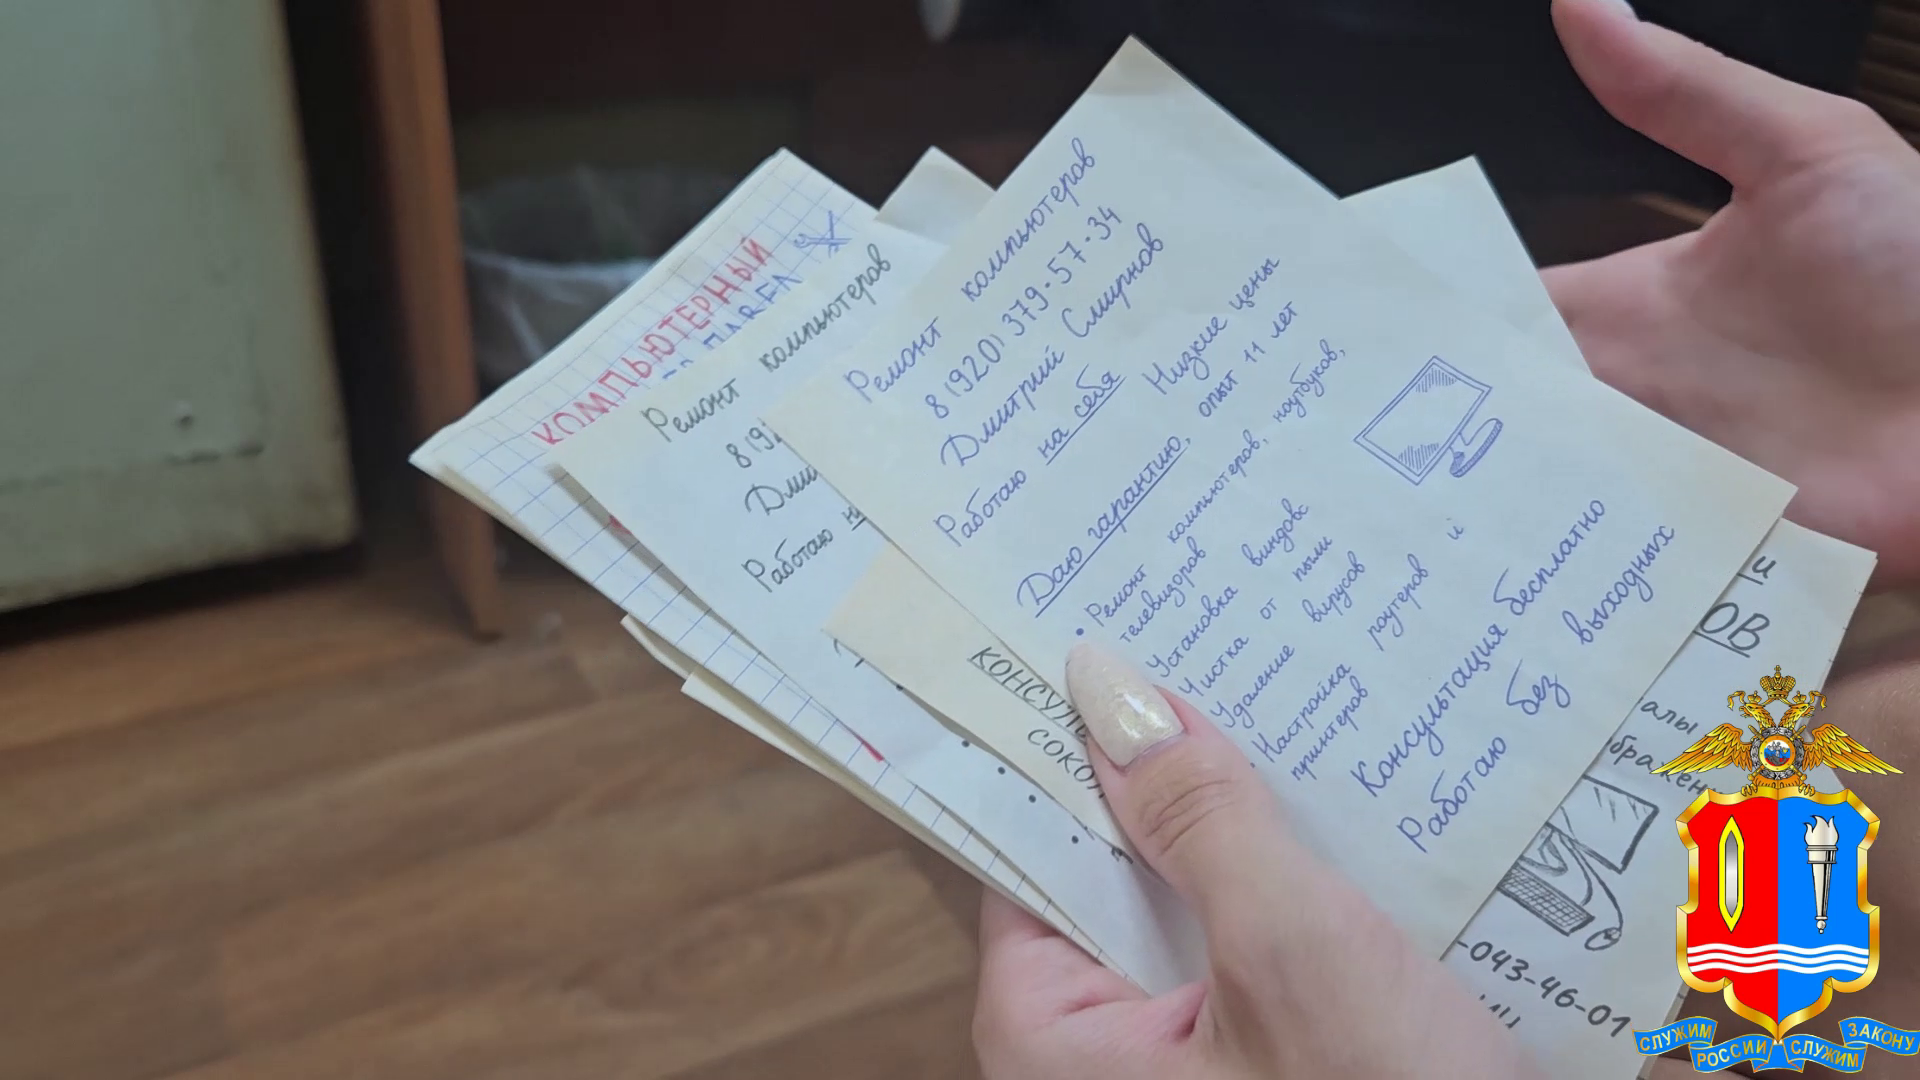 Ремонт компьютеров
8(920)379-57-34
Дмитрий Смирнов
Работаю на себя Низкие цены
Даю гарантию, опыт 11 лет
• Ремонт компьютеров, ноутбуков,
телевизоров
Установка виндовс
Чистка от пыли
Удаление вирусов
Настройка роутеров и
принтеров
Консультация бесплатно
Работаю без выходных
КОМПЬЮТЕРНЫЙ
Ремонт компьютеров
Работаю
-043-46-01
СЛУЖИМ РОССИИ СЛУЖИМ ЗАКОНУ